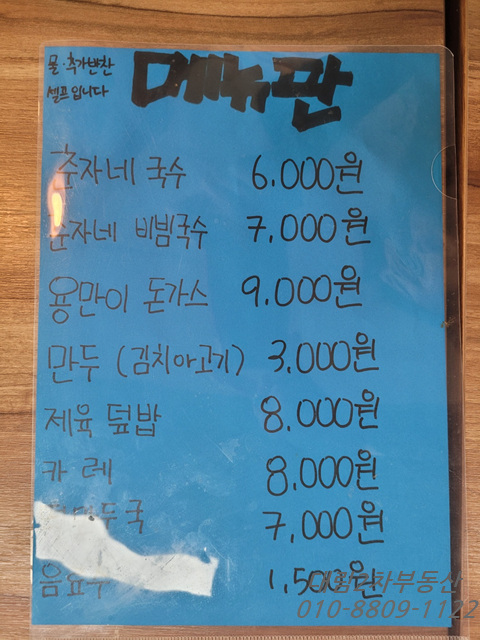 물·추가반찬
셀프입니다
메뉴판
춘자네 국수 6,000원
춘자네 비빔국수 7,000원
용만이 돈가스 9,000원
만두 (김치아고기) 3,000원
제육 덮밥 8,000원
카레 8,000원
국 7,000원
음료수 1,500원
대림2차부동산
010-8809-1122